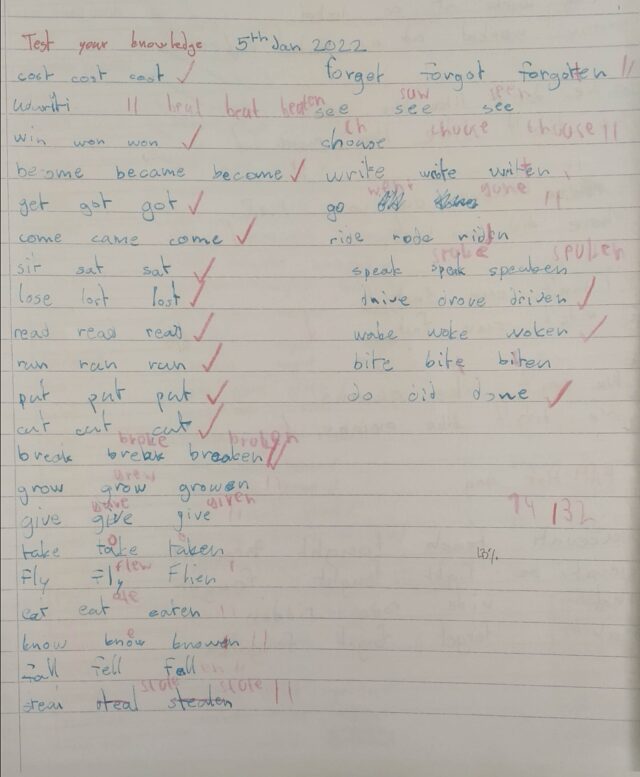 Test your knowledge 5th Jan 2022
cost cost cost ✓ forget forgot forgotten //
saw seen
// beat beat beaten see see see
win won won ✓ ch choose choose choose //
become became become ✓ write wrote writen
went gone
get got got ✓ go //
come came come ✓ ride rode riden
spoke spoken
sit sat sat ✓ speak speak speaken
lose lost lost ✓ drive drove driven ✓
read read read ✓ wake woke woken ✓
run run run ✓ bite bite biten
put put put ✓ do did done ✓
cut cut cut ✓
broke broken
break break breaken //
grew
grow grow growen
gave given
give give give //
take take taken
flew
Fly Fly Flien
ate
eat eat eaten
know know knowen //
Fall Fell Fall
stole stole
steal steal stealen //